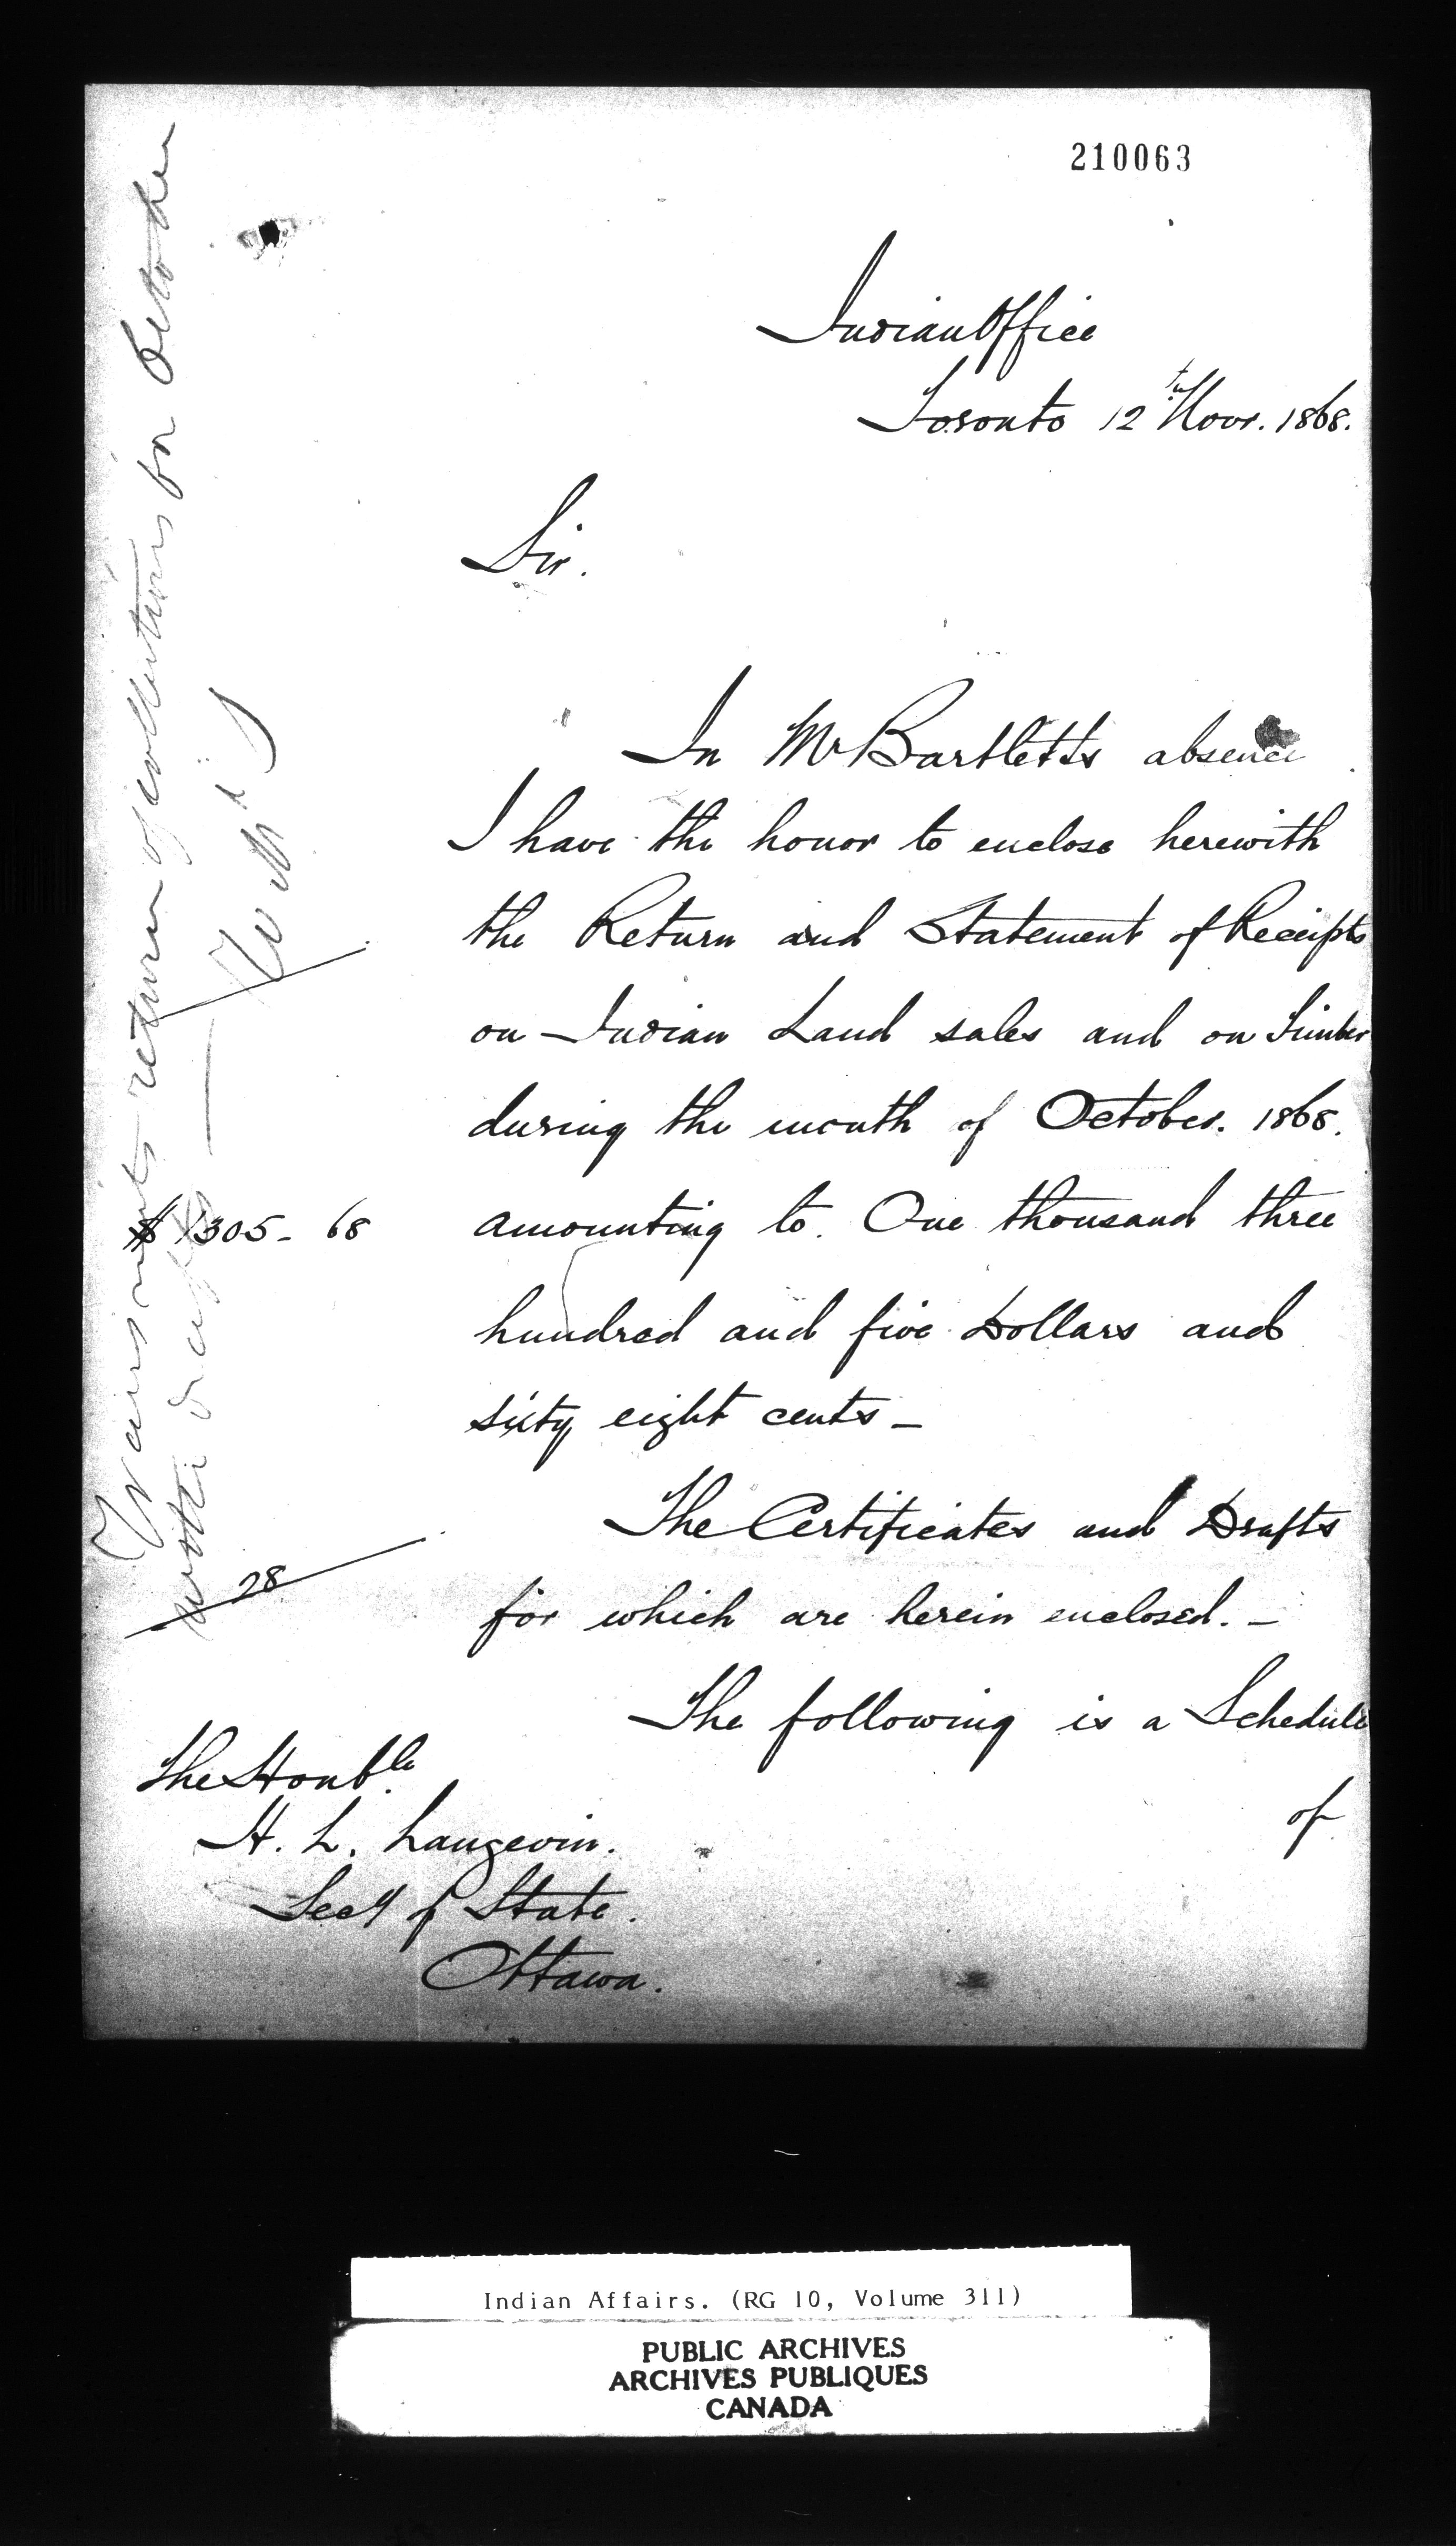 210063
Indian Office
Toronto 12th Novr. 1868.
Sir.
In Mr Bartletts absence
I have the honor to enclose herewith
the Return and Statement of Receipts
on Indian Land sales and on Timber
during the month of October. 1868.
$1305-68 amounting to. One thousand three
hundred and five Dollars and
sixty eight cents_
The Certificates and Drafts
for which are herein enclosed._
The following is a Schedule
of
The Honble.
H. L. Langevin.
Secy of State.
Ottawa.
Transmits return of collections for October
with drafts
28
Indian Affairs. (RG 10, Volume 311)
PUBLIC ARCHIVES
ARCHIVES PUBLIQUES
CANADA